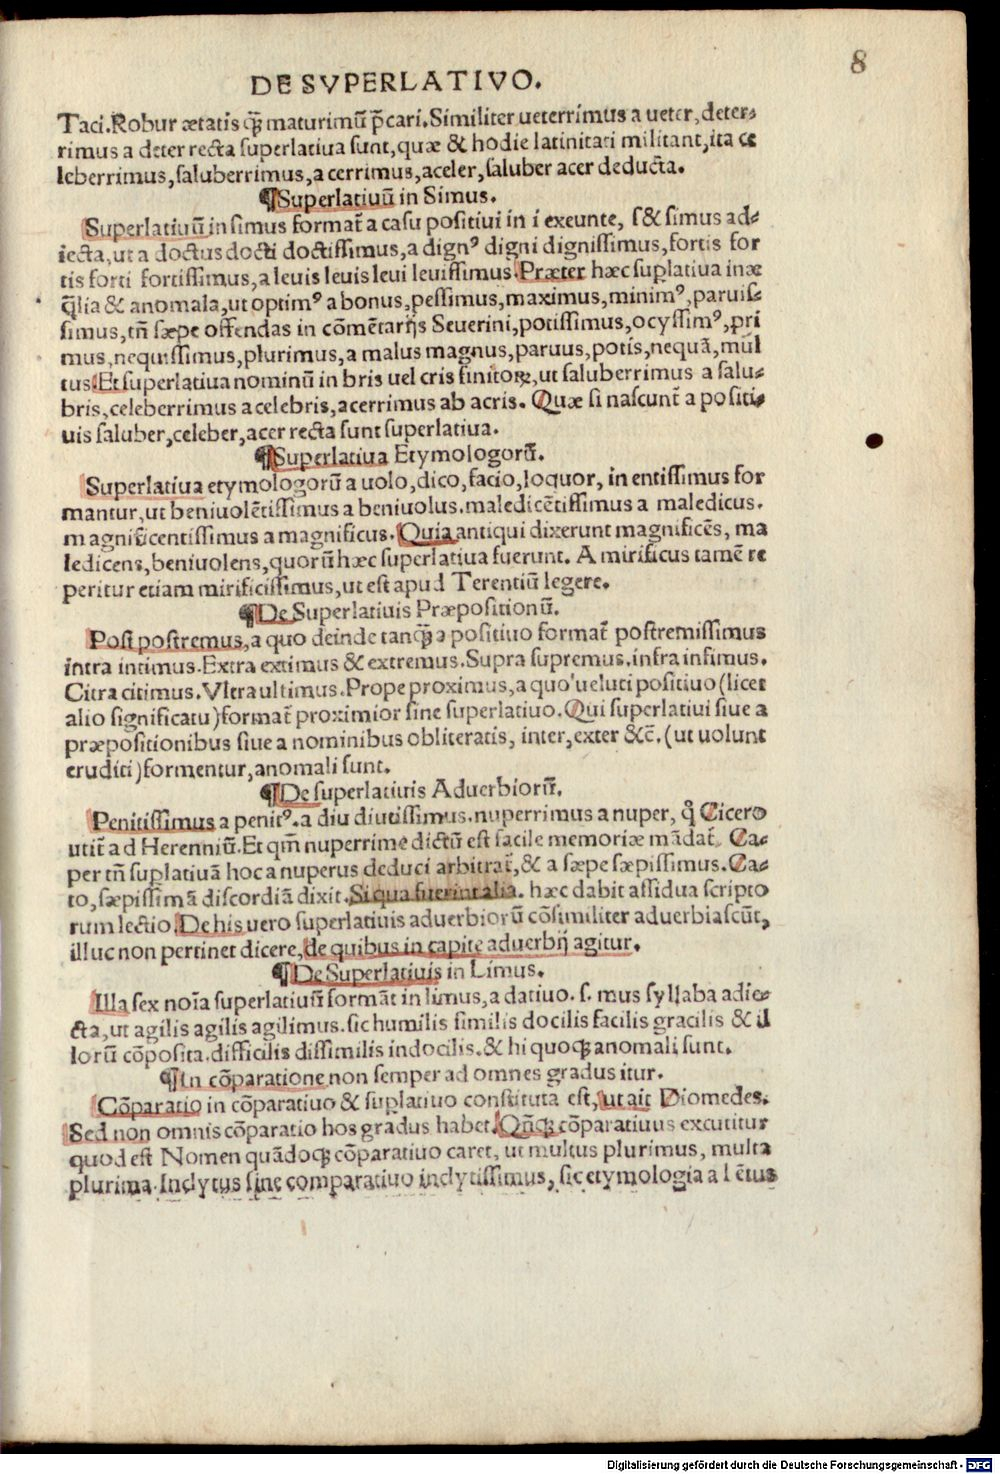 8
DE SVPERLATIVO.
Taci. Robur ætatis q̃ȝ maturimũ p̃cari. Similiter ueterrimus a ueter, deter-
rimus a deter recta superlatiua sunt, quæ & hodie latinitati militant, ita ce
leberrimus, saluberrimus, acerrimus, a celer, saluber acer deducta.
¶Superlatiuũ in Simus.
Superlatiuũ in simus format̃ a casu positiui in i exeunte, s & simus ad-
iecta, ut a doctus docti doctissimus, a dignꝰ digni dignissimus, fortis for
tis forti fortissimus, a leuis leuis leui leuissimus. Præter hæc suplatiua inæ
q̃lia & anomala, ut optimꝰ a bonus, pessimus, maximus, minimꝰ, paruis-
simus, tñ sæpe offendas in cõmẽtarijs Seuerini, potissimus, ocyssimꝰ, pri
mus, nequissimus, plurimus, a malus magnus, paruus, potis, nequã, mul
tus. Et superlatiua nominũ in bris uel cris finitoꝝ, ut saluberrimus a salu-
bris, celeberrimus a celebris, acerrimus ab acris. Quæ si nascunt̃ a positi-
uis saluber, celeber, acer recta sunt superlatiua.
¶Superlatiua Etymologorũ.
Superlatiua etymologorũ a uolo, dico, facio, loquor, in entissimus for
mantur, ut beniuolẽtissimus a beniuolus. maledicẽtissimus a maledicus.
magnificentissimus a magnificus. Quia antiqui dixerunt magnificẽs, ma
ledicens, beniuolens, quorũ hæc superlatiua fuerunt. A mirificus tamẽ re
peritur etiam mirificissimus, ut est apud Terentiũ legere.
¶De Superlatiuis Præpositionũ.
Post postremus, a quo deinde tanq̃ȝ a positiuo format̃ postremissimus
intra intimus. Extra extimus & extremus. Supra supremus. infra infimus.
Citra citimus. Vltra ultimus. Prope proximus, a quo ueluti positiuo (licet
alio significatu) format̃ proximior sine superlatiuo. Qui superlatiui siue a
præpositionibus siue a nominibus obliteratis, inter, exter &c̃. (ut uolunt
eruditi) formentur, anomali sunt.
¶De superlatiuis Aduerbiorũ.
Penitissimus a penitꝰ. a diu diutissimus. nuperrimus a nuper, q̊ Cicero
utit̃ ad Herenniũ. Et qm̃ nuperrime dictũ est facile memoriæ mãdat̃. Ca-
per tñ suplatiuũ hoc a nuperus deduci arbitrat̃, & a sæpe sæpissimus. Ca-
to, sæpissimã discordiã dixit. Si qua fuerint alia. hæc dabit assidua scripto
rum lectio. De his uero superlatiuis aduerbiorũ cõsimiliter aduerbiascũt,
illuc non pertinet dicere, de quibus in capite aduerbij agitur.
¶De Superlatiuis in Limus.
Illa sex noĩa superlatiuũ formãt in limus, a datiuo. s. mus syllaba adie-
cta, ut agilis agilis agilimus. sic humilis similis docilis facilis gracilis & il
lorũ cõposita. difficilis dissimilis indocilis. & hi quoqȝ anomali sunt.
¶In cõparatione non semper ad omnes gradus itur.
Cõparatio in cõparatiuo & suplatiuo constituta est, ut ait Diomedes.
Sed non omnis cõparatio hos gradus habet. Qñqȝ cõparatiuus excutitur
quod est Nomen quãdoqȝ cõparatiuo caret, ut multus plurimus, multa
plurima. Inclytus sine comparatiuo inclytissimus, sic etymologia a l ẽtus
Digitalisierung gefördert durch die Deutsche Forschungsgemeinschaft - DFG